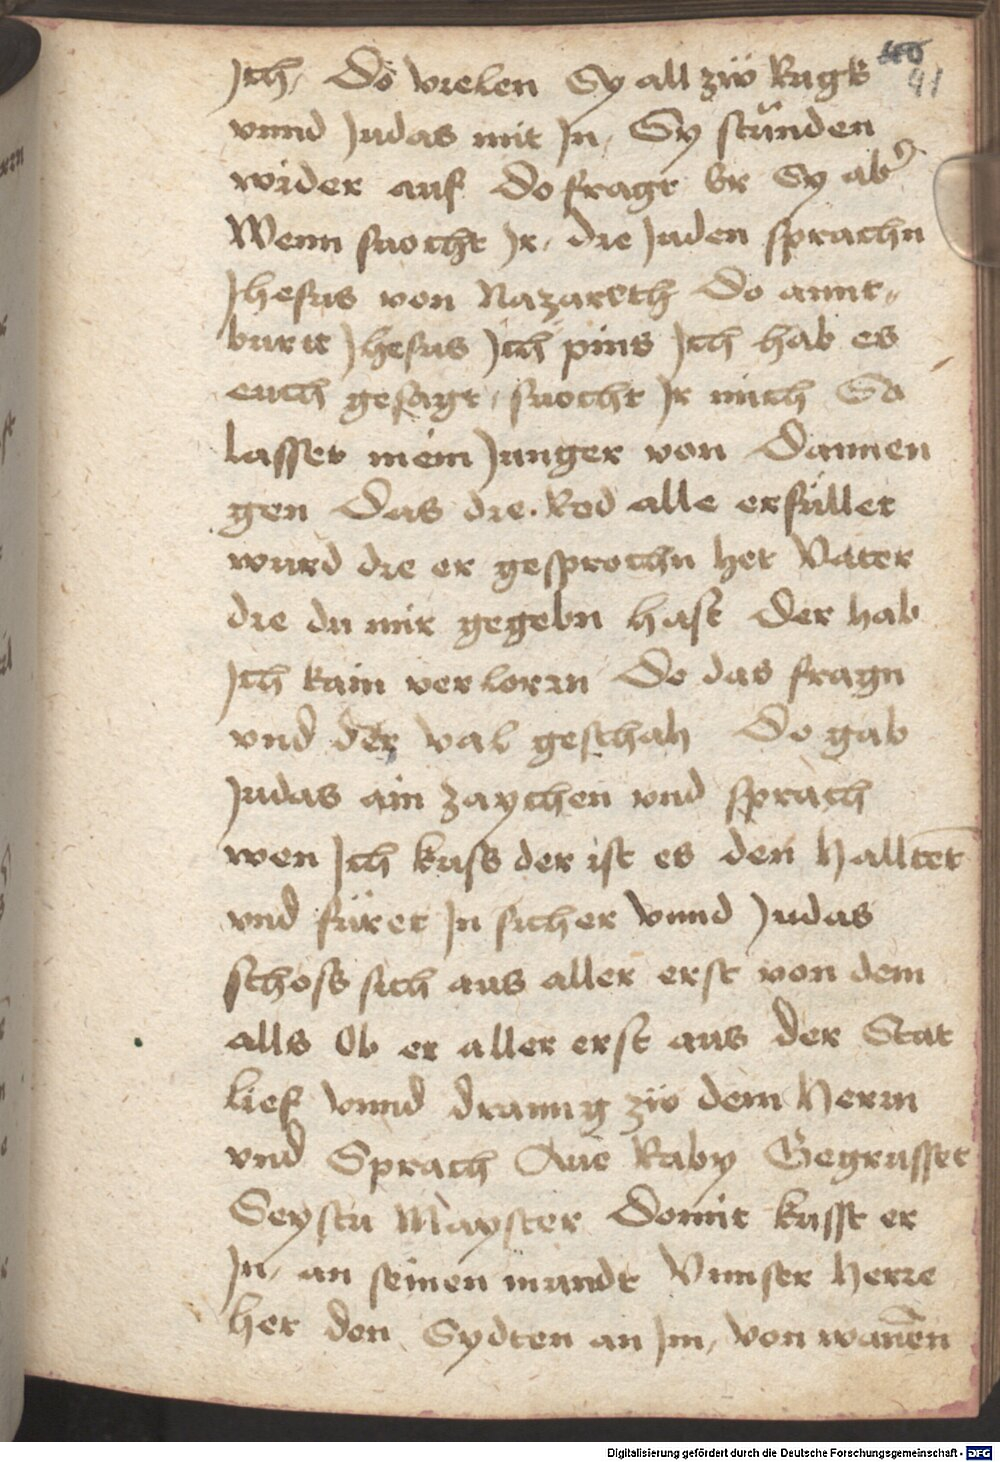 40
41
Jch, Do vielen Sy all zw Rugk
vnnd Judas mit Jn, Sy stůnden
wider auf Do fragt Er Sy ab⁹
Wenn suocht Jr, die Juden sprachn
Jhesus von Nazareth Do annt„
burtt Jhesus Jch pins Jch hab es
euch gesagt, suocht Jr mich So
lasset mein Junger von Dannen
gen Das die Red alle erfüllet
wurd die er gesprochn het Vater
die du mir gegebn hast Der hab
Jch kain verlorn Do das fragn
vnd der val geschah Do gab
Judas ain zaychen vnd sprach
wen Jch kuss der ist es den Halltet
vnd füret Jn sicher vnnd Judas
schoss sich aus aller erst von dem
alls Ob er aller erst aus der Stat
lief vnnd dranng zw dem Herrn
vnd Sprach Aue Raby Gegrusset
Seystu Mayster Domit kusst er
Jn, an seinen mundt Vnnser Herre
het den Sydten an Jm, von wanēn
Digitalisierung gefördert durch die Deutsche Forschungsgemeinschaft - DFG